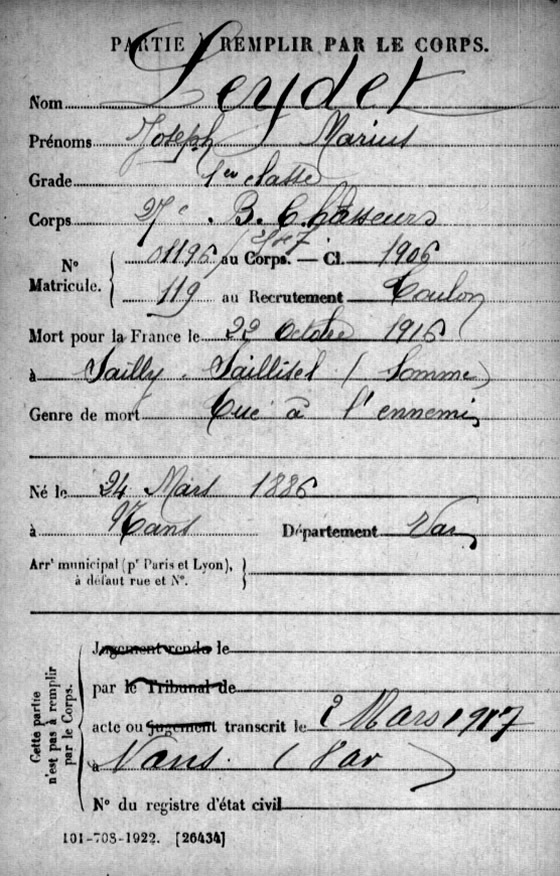 PARTIE À REMPLIR PAR LE CORPS.
Nom Leydet
Prénoms Joseph Marius
Grade 1ère classe
Corps 27e B. Chasseurs
N° Matricule. 01196 au Corps. — Cl. 1906
119 au Recrutement Toulon
Mort pour la France le 22 Octobre 1916
à Sailly-Saillisel (Somme)
Genre de mort Tué à l'ennemi
Né le 24 Mars 1886
à Nans Département Var
Arrt municipal (pr Paris et Lyon),
à défaut rue et N°.
Cette partie n'est pas à remplir par le Corps.
Jugement rendu le
par le Tribunal de
acte ou jugement transcrit le 2 Mars 1917
à Nans. (Var)
N° du registre d'état civil
101-708-1922. [26434]